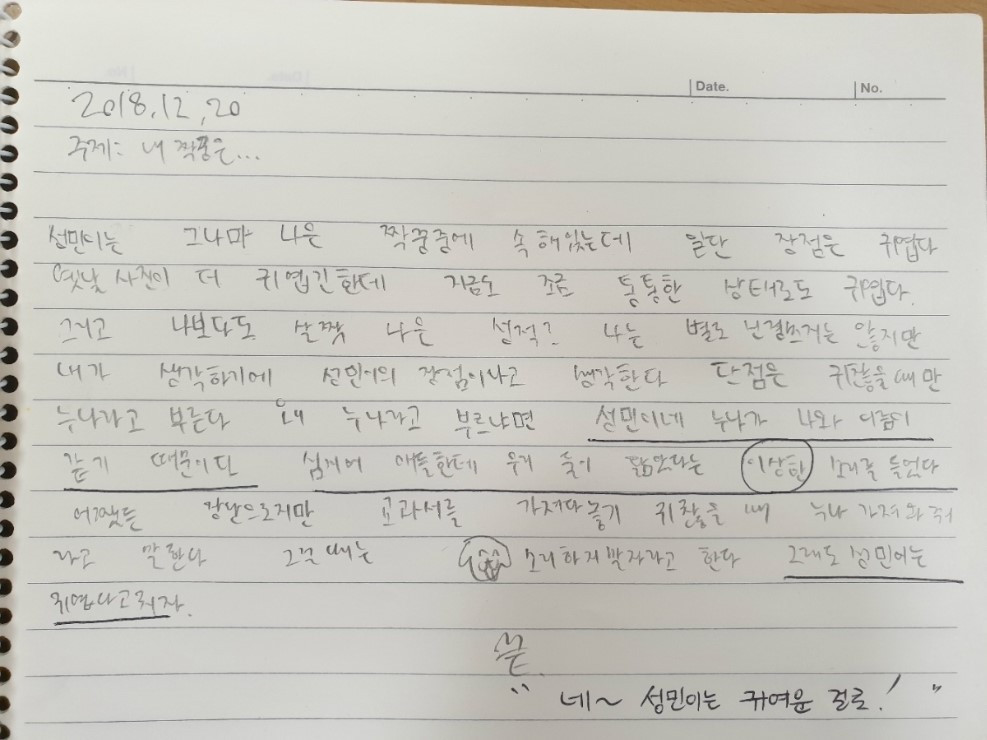 Date. No.
2018.12.20
주제: 내 짝꿍은...
성민이는 그나마 나은 짝꿍중에 속해있는데 일단 장점은 귀엽다
옛날 사진이 더 귀엽긴한데 지금도 조금 통통한 상태로도 귀엽다.
그리고 나보다도 살짝 나은 성적? 나는 별로 신경쓰지는 않지만
내가 생각하기에 성민이의 장점이라고 생각한다 단점은 귀찮을때만
누나라고 부른다 왜 누나라고 부르냐면 성민이네 누나가 나와 이름이
같기 때문이다 심지어 애들한테 우리 둘이 닮았다는 이상한 소리를 들었다
어쨌든 장난으로지만 교과서를 가져다놓기 귀찮을 때 누나 가져와줘
라고 말한다 그럴때는 소리하지말자라고 한다 그래도 성민이는
귀엽다고치자.
끝.
" 네~ 성민이는 귀여운 걸로! "